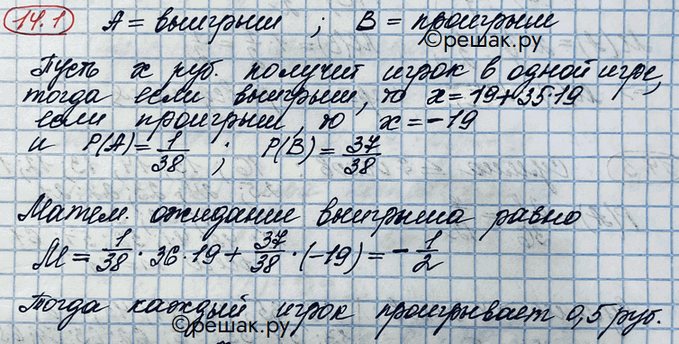 14.1 A = выигрыш ; B = проигрыш
©решак.ру
Пусть x руб. получит игрок в одной игре,
тогда если выигрыш, то x = 19 + 35·19
если проигрыш, то x = -19
и P(A) = 1/38 ; P(B) = 37/38
Матем. ожидание выигрыша равно
M = 1/38 · 36 · 19 + 37/38 · (-19) = - 1/2
Тогда каждый игрок проигрывает 0,5 руб.
©решак.ру